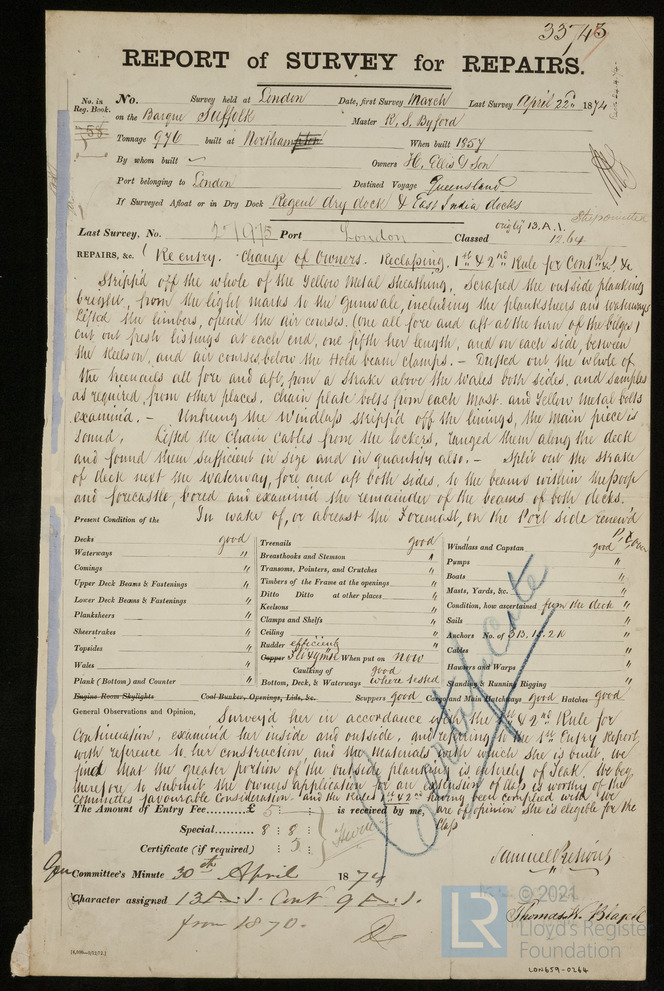 33743
REPORT of SURVEY for REPAIRS.
No. in Reg. Book. No. Survey held at London Date, first Survey March Last Survey April 22nd 1874
58 on the Barque Suffolk Master R. S. Byford
Tonnage 976 built at Northampton When built 1857
By whom built Owners H. Ellis & Son
Port belonging to London Destined Voyage Queensland
If Surveyed Afloat or in Dry Dock Regent dry dock & East India docks
Last Survey, No. 27975 Port London Classed origly 13. A.1. 12.64
REPAIRS, &c. (Re entry. Change of Owners. Reclassing. 1st & 2nd Rule for Contn &c
Stripp'd off the whole of the Yellow Metal Sheathing, Scraped the outside planking
bright, from the light marks to the Gunwale, including the planksheers and waterways
Lifted the limbers, open'd the air courses. (One all fore and aft at the turn of the bilges)
cut out fresh listings at each end, one fifth her length, and on each side, between
the Keelson, and air courses below the Hold beam clamps. - the whole of
the treenails all fore and aft, from a strake above the wales both sides, and samples
as required, from other places, chain plate bolts from each Mast. and Yellow Metal bolts
examin'd. - Unhung the Windlass stripp'd off the linings, the main piece is
sound. Lifted the Chain Cables from the lockers, ranged them along the deck
and found them sufficient in size and in quantity also. - Split out the strake
of deck next the waterway, fore and aft both sides, to the beams within the poop
and forecastle, bored and examin'd the remainder of the beams of both decks.
In wake of, or abreast the Foremast, on the Port side renew'd
P.T. Over
Present Condition of the
Decks good
Waterways "
Comings "
Upper Deck Beams & Fastenings "
Lower Deck Beams & Fastenings "
Planksheers "
Sheerstrakes "
Topsides "
Wales "
Plank (Bottom) and Counter "
Treenails good
Breasthooks and Stemson "
Transoms, Pointers, and Crutches "
Timbers of the Frame at the openings "
Ditto Ditto at other places "
Keelsons "
Clamps and Shelfs "
Ceiling "
Rudder efficient
Copper When put on now
Caulking of good
Bottom, Deck, & Waterways where tested
Windlass and Capstan good
Pumps "
Boats "
Masts, Yards, &c. "
Condition, how ascertained from the deck "
Sails "
Anchors No. of 3B. 1S. 2K "
Cables "
Hawsers and Warps "
Standing & Running Rigging "
Engine Room Skylights Coal Bunker, Openings, Lids, &c. Scuppers good Cargo and Main Hatchways good Hatches good
General Observations and Opinion, Survey'd her in accordance with the 1st & 2nd Rule for
Continuation, examin'd her inside and outside, and referring to the 1st Entry Report,
with reference to her construction and the Materials with which she is built, we
find that the greater portion of the outside planking is entirely of Teak. We beg
therefore to submit the owners application for an extension of Class is worthy of the
Committees favourable Consideration - and the Rules 1st & 2nd having been complied with, we
are of opinion she is eligible for the
Class
Certificate
The Amount of Entry Fee......£ 5 : is received by me,
Special........ 8 : 8 :
Certificate (if required) : 5 :
Samuel Pretious
Thomas W.
Committee's Minute 30th April 1874
Character assigned 13 A.1. Contd 9 A.1.
from 1870.
[4,000—3/12/72.]
LR © 2021
Lloyd's Register
Foundation
LON659-0264